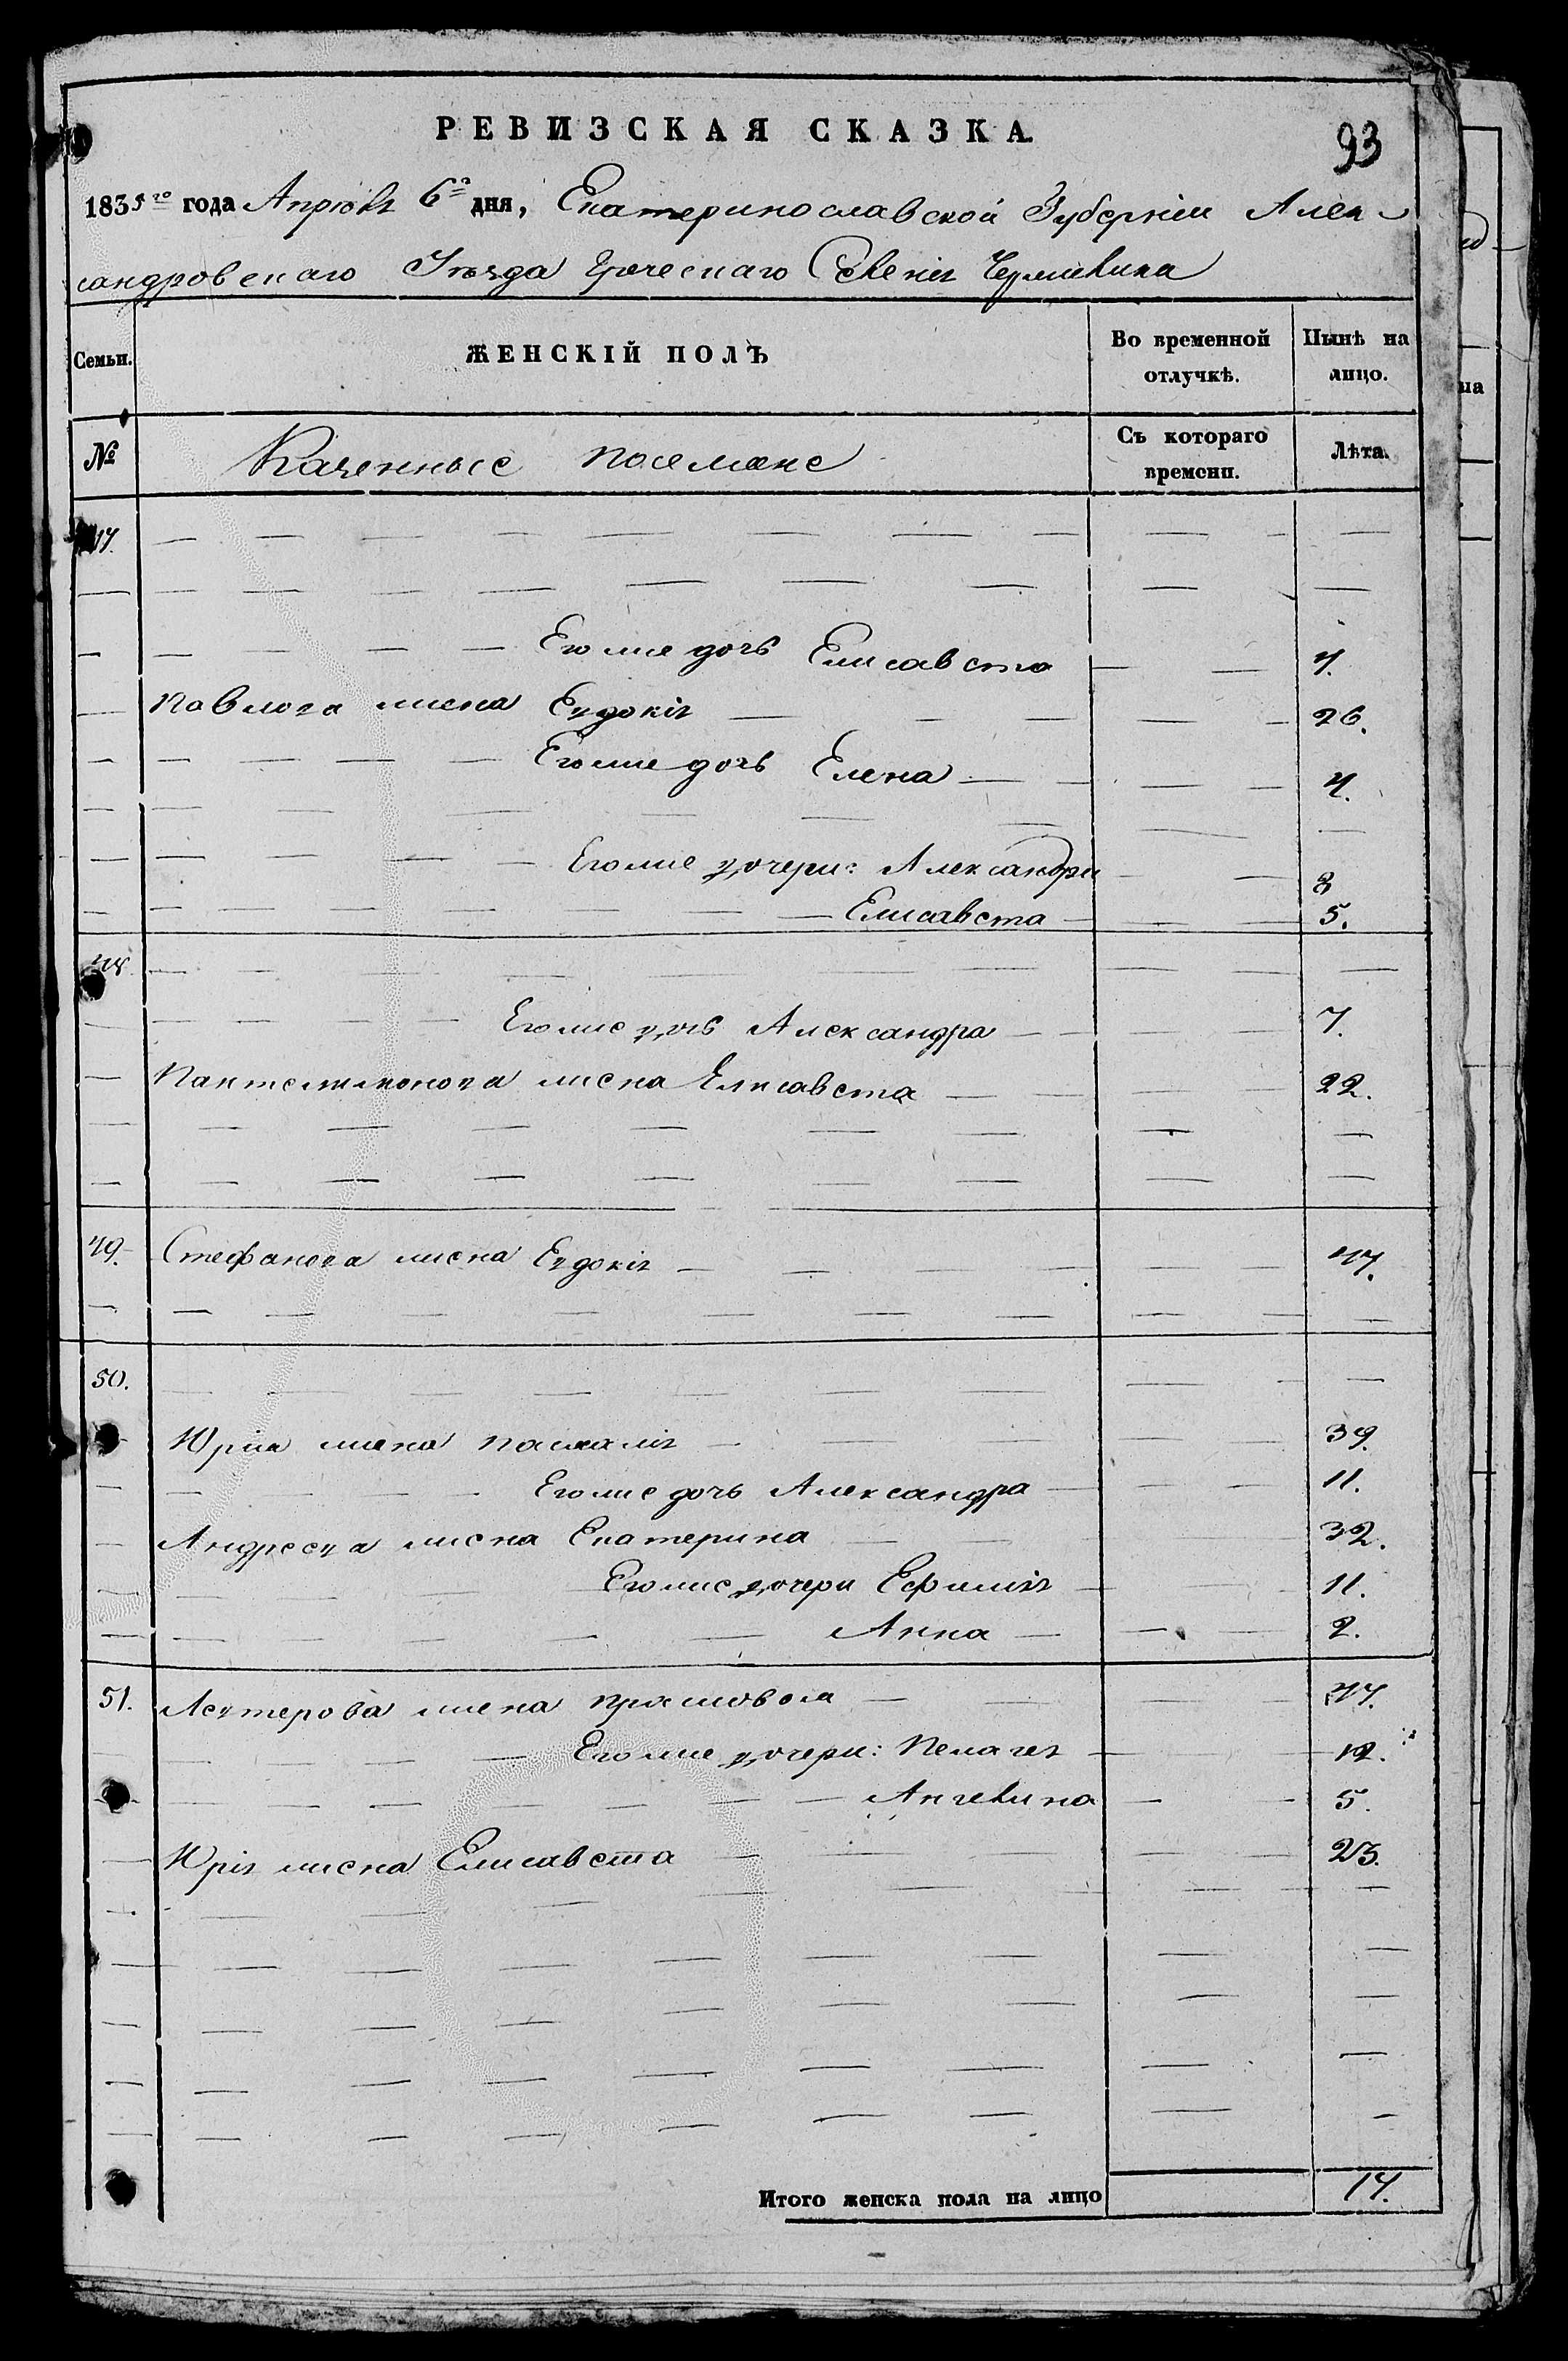 РЕВИЗСКАЯ СКАЗКА.
93
1835го года Апреля 6го дня, Екатеринославской Губерніи Алек-
сандровскаго Уезда Греческаго Селенія Чермалика
Семьи. ЖЕНСКІЙ ПОЛЪ Во временной отлучкѣ. Нынѣ на лицо.
№ Казенные поселяне Съ котораго времени. Лѣта.
47.
Его же дочь Елисавета 4.
Павлова жена Евдокія 26.
Его же дочь Елена 4.
Его же дочери: Александра 8
Елисавета 5.
48.
Его же дочь Александра 7.
Пантелимонова жена Елисавета 22.
49. Стефанова жена Евдокія 47.
50.
Юрія жена Пасхалія 39.
Его же дочь Александра 11.
Андреева жена Екатерина 32.
Его же дочери Ефимія 11.
Анна 2.
51. жена
Его же дочери: Пелагея 12.
Ангелина 5.
Юрія жена Елисавета 23.
Итого женска пола на лицо 17.